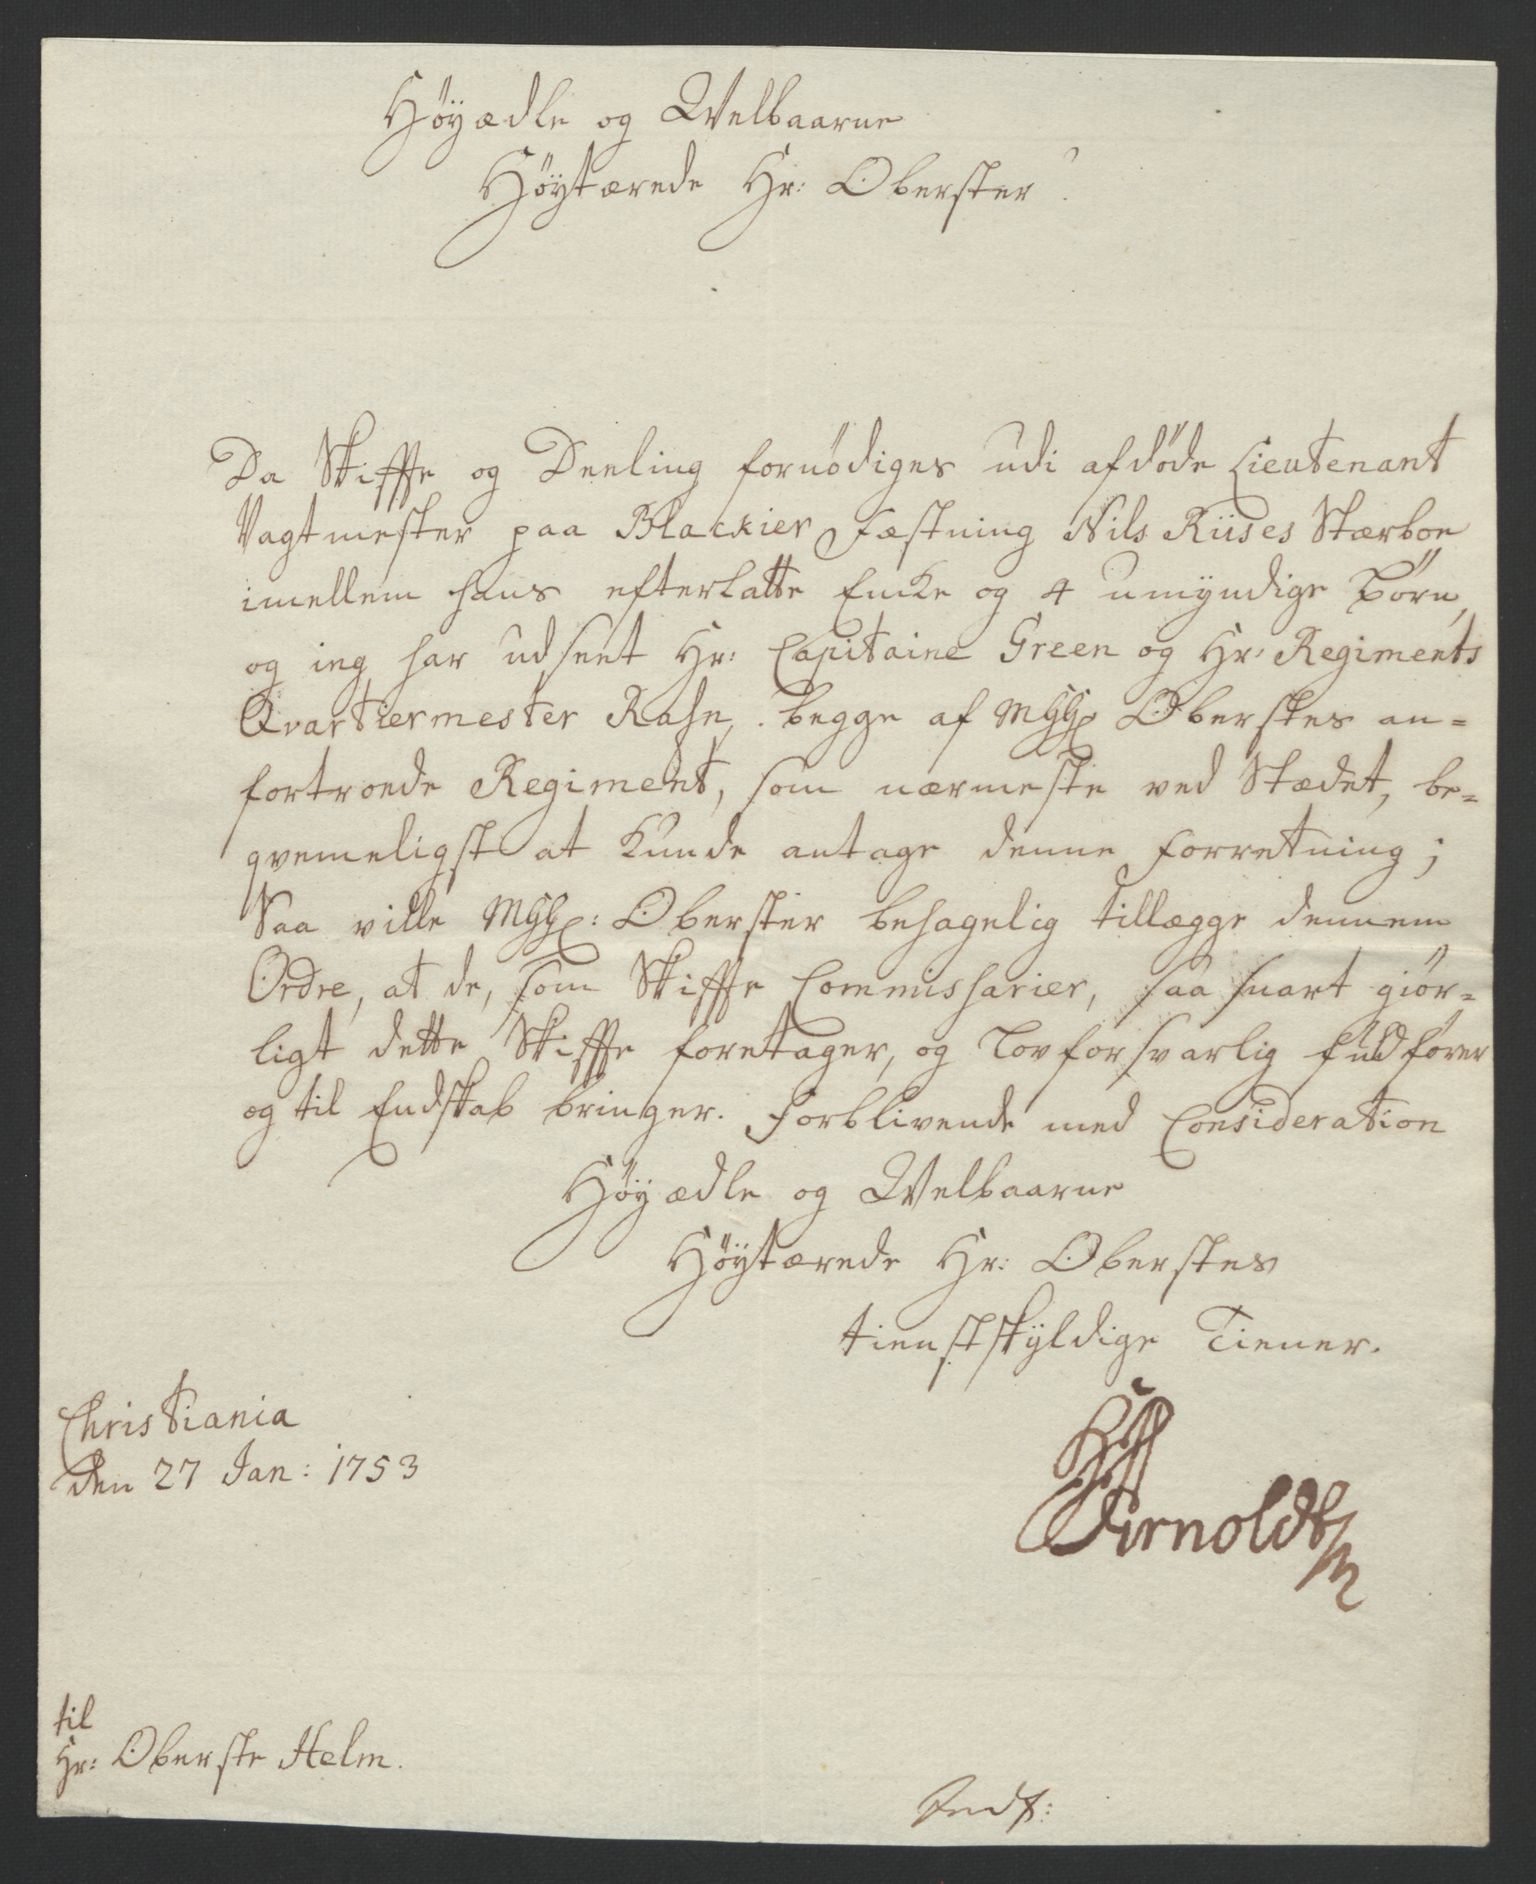 Höÿædle og Welbaarne
Höÿtærede Hr: Oberster.
Da Skiffte og Deeling fornödiges udi afdöde Lieutenant
Vagtmester paa Blackier Fæstning Nils Riises Stærboe
imellem hans efterlatte Encke og 4 umÿndige Börn,
og ieg har udseet Hr: Capitaine Green og Hr: Regiments
Qvartiermester Rahn, begge af MHH: Oberstes an=
fortroede Regiment, som nærmeste ved Stædet, be=
qvemeligst at kunde antage denne Forretning;
Saa ville MHH: Oberster behagelig tillægge dennem
Ordre, at de, som Skiffte Commissarier, saa snart giör=
ligt dette Skiffte foretager, og Lovforsvarlig fuldfører
og til Endskab bringer. Forblivende med Consideration
Höÿædle og Welbaarne
Höÿtærede Hr: Oberstes
tienstskÿldige Tiener.
Christiania
den 27 Jan: 1753
Arnoldt
til
Hr: Oberste Helm.